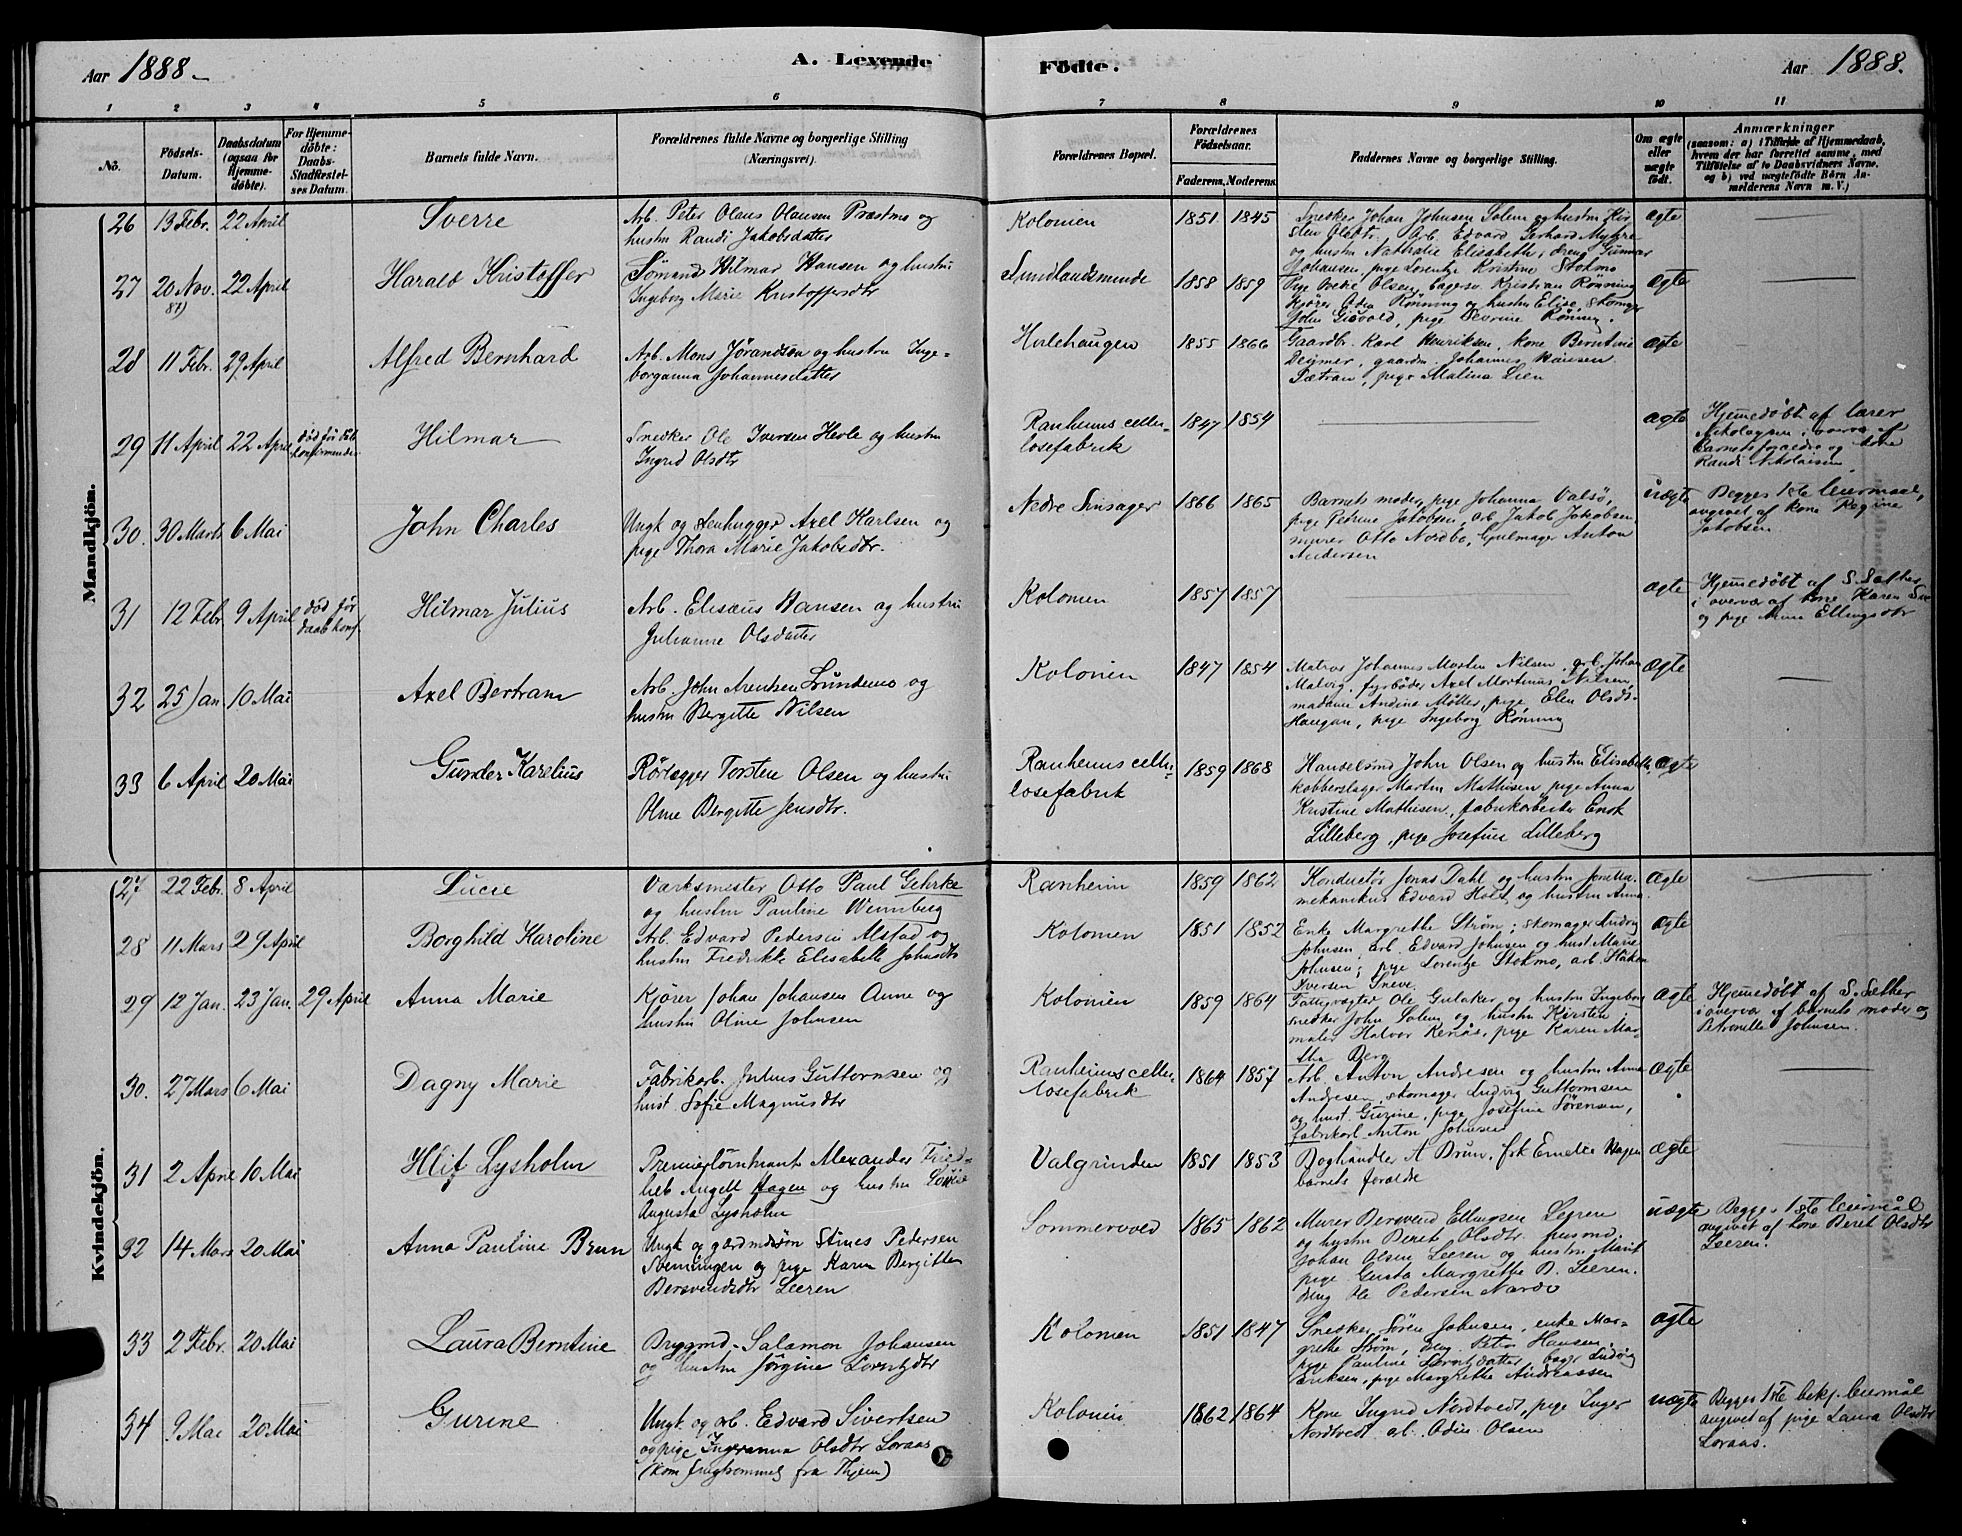 Aar 1888.
A. Levende
Födte.
Aar 1888.
1 2 3 4 5 6 7 8 9 10 11
No.
Födsels-
Datum.
Daabsdatum
(ogsaa for
Hjemme-
döbte).
For Hjemme-
döbte:
Daabs-
Stadfæstel-
ses Datum.
Barnets fulde Navn.
Forældrenes fulde Navne og borgerlige Stilling
(Næringsvei).
Forældrenes Bopæl.
Forældrenes
Födselsaar.
Faderens. Moderens.
Faddernes Navne og borgerlige Stilling.
Om ægte
eller
uægte
födt.
Anmærkninger
(saasom: a) i Tilfælde af Hjemmedaab,
hvem der har forrettet samme, med
Tilföielse af to Daabsvidners Navne,
og b) ved uægtefödte Börn An-
melderens Navn m. V.)
Mandkjön.
26 13 Febr. 22 April Sverre
Arb. Peter Olaus Olausen Præstmo og
hustru Randi Jakobsdatter
Kolonien 1851 1845
Snedker Johan Johnsen Solem og hustru Kir-
sten Olsdtr, Arb. Edvard Gerhard Myhre
og hustru Nathalie Elisabeth, dreng Gunnar
Johansen, pige Lorentze Kristine Stokmo
ægte
27 20 Nov. 87) 22 April Harald Kristoffer
Sömand Hilmar Hansen og hustru
Ingeborg Marie Kristoffersdtr
Sundlandsminde 1858 1859
Olsen, Kristian Rönning
Kjörer Rönning og hustru Elise, Skomager
John Gisvold, pige Severine Rönning.
ægte
28 11 Febr. 29 April Alfred Bernhard
Arb. Mons Jörandsön og hustru Inge-
borganna Johannesdatter
1855 1866
Gaardbr. Karl Henriksen, kone Berntine
gaardm. Johannes Hansen
pige Malina Lien
ægte
29 11 April 22 April
Hilmar
Snedker Ole Iversen Hevle og hustru
Ingrid Olsdtr
Ranheims cellu-
losefabrik
1847 1854
ægte
Hjemmedöbt af lærer
Nikolaysen i overvær af
barnets forældre og kone
Randi Nikolaisen.
30. 30 Marts 6 Mai John Charles
Ungk og Axel Karlsen og
pige Thora Marie Jakobsdtr.
Nedre Sinsager 1866 1865
Barnets moder, pige Johanna Valsö,
pige Petrine Jakobsen, arb. Jakob Jakobsen
murer Otto Nordbo, Gjulmager Anton
Andersen
uægte
Begges 1ste leiermaal,
angivet af kone Regine
Jakobsen
31 12 Febr 9 April död för
daab konf.
Hilmar Julius
Arb. Elisæus Hansen og hustru
Julianne Olsdatter
Kolonien 1857 1857
ægte
Hjemmedöbt af S. Sæther
i overvær af kone Karen
og pige Ellingsdtr
32 25 Jan. 10 Mai Axel Bertram
Arb. John Arentsen Lundemo og
hustru Bergitte Nilsen
Kolonien 1847 1854
Matros Johannes Morten Nilsen, arb. Johan
Malvig, fyrböder Axel Martinus Nilsen,
madame Andine Möller, pige Elen Olsdt-
Haugan, pige Ingeborg Rönning
ægte
33 6 April 20 Mai Gunder Karelius
Rörlægger Torsten Olsen og hustru
Oline Bergitte Jensdtr.
Ranheims cellu-
losefabrik
1859 1868
Handelsmd John Olsen og hustru Elisabeth,
kobberslager Martin Mathisen, pige Anna
Kristine Mathisen, fabrikarbeider Enok
Lilleberg, pige Josefine Lilleberg
ægte
Kvindekjön.
27 22 Febr. 8 April Lucie
Værksmester Otto Paul Gehrke
og hustru Pauline Weinberg
Ranheim 1859 1862
Konduktör Jonas Dahl og hustru
mekanikus Edvard Holt og hustru Anna.
ægte
28 11 Mars 29 April Borghild Karoline
Arb. Edvard Pedersen Alstad og
hustru Fredrikke Elisabeth Johnsdtr
Kolonien 1851 1852
Enke Margrethe Ström; skomager
Johnsen, arb. Edvard Johnsen og hust. Marie
Johnsen, pige Lorentze Stokmo, arb. Håken
Iversen Sneve.
ægte
29 12 Jan. 23 Jan. 29 April Anna Marie
Kjörer Johan Johansen Aune og
hustru Oline Johnsen
Kolonien 1859 1864
Fattigvogter Ole Gulaker og hustru Ingeborg
snedker John Solem og hustru Kirsten;
maler Halvor pige Karen Mar-
tha Berg
ægte
Hjemmedöbt af S. Sæther
i overvær af barnets moder og
Petronelle Johnsen.
30. 27 Mars 6 Mai Dagny Marie
Fabrikarb. Julius Guttormsen og
hust Sofie Magnusdtr
Ranheims cellu-
losefabrik
1864 1857
Arb. Anton Andresen og hustru Anna
Andresen, skomager Ludvig Guttormsen
og hust. Gurine, pige Josefine Sörensen,
fabrikarb. Anton Johnsen
ægte
31 2 April 10 Mai Hlif Lysholm
Premierlöitnant Alexander Fried-
lieb Angell Hagen og hustru
Augusta Lysholm
Valgrinden 1851 1853
Boghandler A Brun, frk Emelie Hagen
barnets forældre
ægte
32 14 Mars 20 Mai Anna Pauline Brun
Ungk og gaardmdsön Stines Pedersen
Svenningen og pige Karen Bergitte
Bersvendsdtr Leeren
Sommervold 1865 1862
Murer Bersvend Ellingsen Leeren
og hustru Berit Olsdtr. husmd.
Johan Olsen Leeren og hustru Marit
pige Gusta Margrethe B. Leeren.
Ole Pedersen Nardo
uægte
Begges 1ste leiermål
angivet af kone Berit Olsdtr
Leeren.
33 2 Febr. 20 Mai Laura Berntine
Brygmd. Salamon Johansen
og hustru Jörgine Lorntzdtr
Kolonien 1851 1847
Snedker Sören Johnsen, enke Mar-
grethe Ström, Peter Hansen,
pige Pauline Lorntzdatter, bager Ludvig
Eriksen, pige Margrethe Andreassen
ægte
34 9 Mai 20 Mai Gurine
Ungk og arb. Edvard Sivertsen
og pige Ingeranna Olsdtr Loraas
(kom fra
Kolonien 1862 1864
Kone Ingrid Nordtvedt, pige Inger
Nordtvedt arb. Odin Olsen
uægte
Begges 1ste bekj. leiermål
angivet af pige Laura Olsdtr
Loraas.